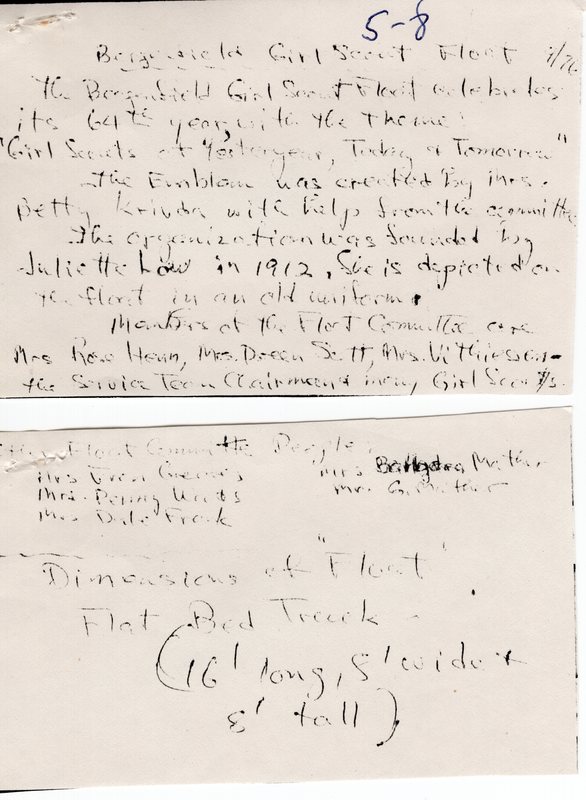 5-8
Bergenfield Girl Scout Float 7/76
The Bergenfield Girl Scout Float celebrates
its 64th year, with the theme:
"Girl Scouts of Yesteryear, Today & Tomorrow"
The Emblem was created by Mrs.
Betty Krivda with help from the committee
The organization was founded by
Juliette Low in 1912. She is depicted on
the float in an old uniform.
Members of the Float Committee are
Mrs Rose Henn, Mrs. Doreen Scott, Mrs.
the Service Team Chairmen & many Girl Scouts.
Float Committee People:
Mrs Fran
Mrs. Penny
Mrs Dale Frank
Mrs Mather
Mrs G. Mather
Dimensions of "Float"
Flat Bed Truck -
(16' long, 8' wide &
8' tall)